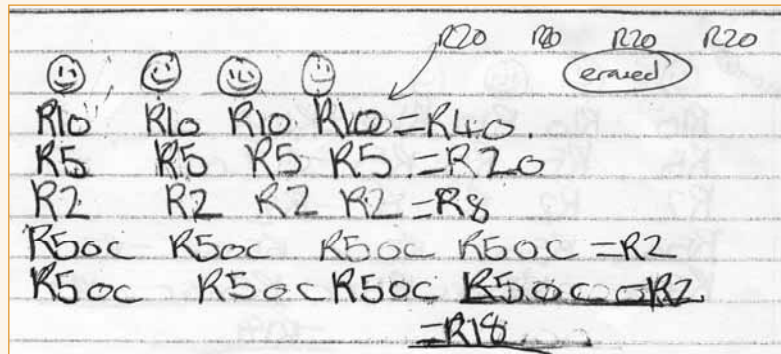 R20 R0 R20 R20
erased
R10 R10 R10 R10 = R40.
R5 R5 R5 R5 = R20
R2 R2 R2 R2 = R8
R50c R50c R50c R50c = R2
R50c R50c R50c R50c = R2
= R18